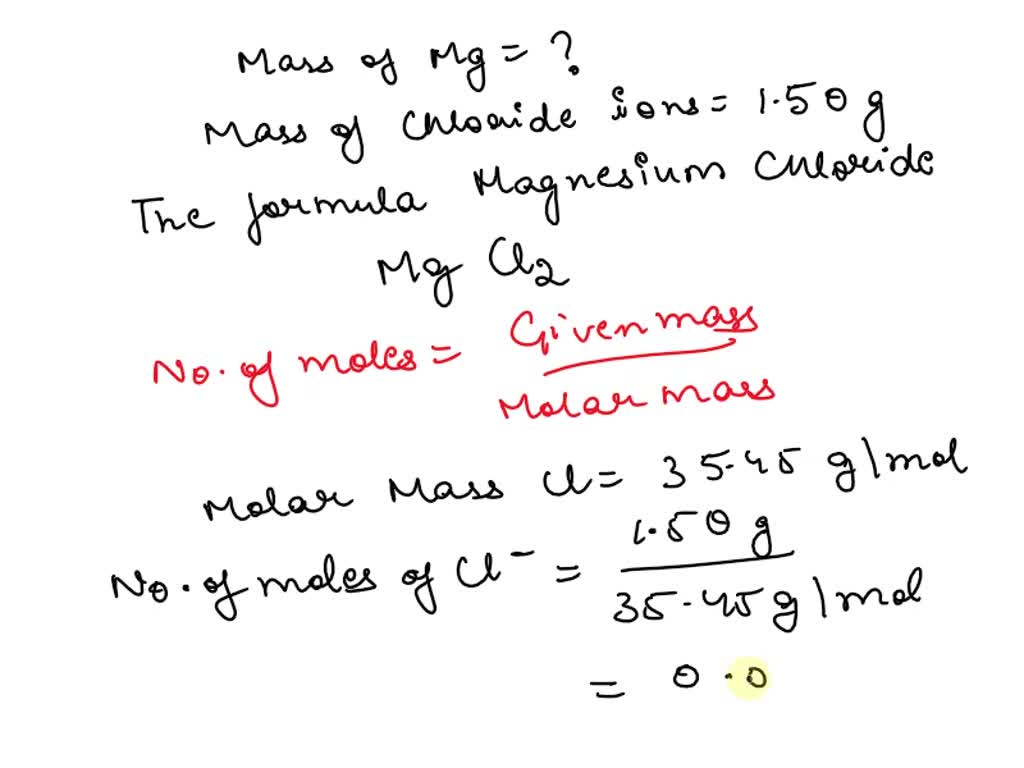 Mass of Mg = ?
Mass of Chloride ions = 1.50 g
The formula Magnesium Chloride
Mg Cl2
No. of moles = Given mass
Molar mass
Molar Mass Cl = 35.45 g/mol
No. of moles of Cl⁻ = 1.50 g
35.45 g/mol
= 0.0